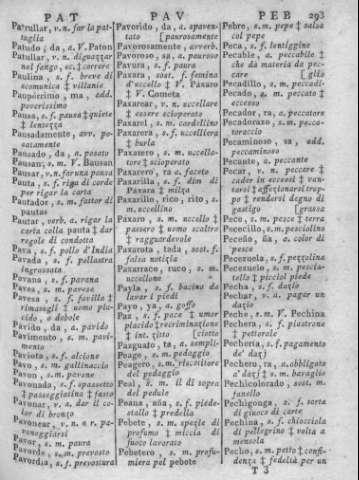 PAT PAV PEB 293
Patrullar, v.n. far la pat-
tuglia
Patudo, da, a. V. Paton
Patullar, v. n. diguazzar
nel fango, ec. ‡ correre
Paulina, s. f. breve di
scomunica ‡ villanie
Paupérrimo, ma, add.
poverissimo
Pausa, s. f. pausa ‡ quiete
‡ lentezza
Pausadamente, avv. po-
satamente
Pausado, da, a. posato
Pausan, v. m. V. Bausan
Pausar, v.n. far una pausa
Pauta, s. f. riga di corde
per rigar la carta
Pautador, s. m. fattor di
pautas
Pautar, verb. a. rigar la
carta colla pauta ‡ dar
regole di condotta
Pava, s. f. pollo d'India
Pavada, s. f. pollastra
ingrassata
Pavana, s. f. pavana
Paves, s. m. pavese
Pavesa, s. f. favilla ‡
rimasugli ‡ uomo pla-
cido, o debole
Pávido, da, a. pavido
Pavimento, s. m. pavi-
mento
Paviota, s. f. alcione
Pavo, s. m. gallinaccio
Pavon, s. m. pavone
Pavonada, s. f. spassetto
‡ passeggiatina ‡ fasto
Pavonar, v. a. dar il co-
lor di bronzo
Pavonear, v. n. e r. pa-
voneggiarsi
Pavor, s. m. paura
Pavorde, s. m. prevosto
Pavordía, s. f. prevostura
Pavorido, da, a. spaven-
tato [paurosamente
Pavorosamente, avverb.
Pavoroso, sa, a. pauroso
Pavura, s. f. paura
Paxara, sost. f. femina
d'uccello ‡ V. Páxaro
‡ V. Cometa
Paxarear, v. n. uccellare
‡ essere scioperato
Paxarel, s. m. cardellino
Paxarera, s. f. uccelliera
‡ burla
Paxarero, s. m. uccella-
tore ‡ scioperato
Paxarero, ra, a. faceto
Paxarilla, s. f. dim. di
Paxara ‡ milza
Paxarillo, rico, rito, s.
m. uccellino
Paxaro, s. m. uccello ‡
passero ‡ uomo scaltro
‡ ragguardevole
Paxarota, tada, sost. f.
falsa notizia
Paxarraco, ruco, s. m.
uccellone
Payla, s. f. bacino da
lavar i piedi
Payo, ya, a. goffo
Paz, s. f. pace ‡ umor
placido ‡ recriminazione
Pazguato, ta, a. sempli-
Peage, s. m. pedaggio
Peagero, s. m. riscotitore
del pedaggio
Peal, s. m. il di sopra
del pedule
Peana, ña, s. f. piede-
stallo ‡ predella
Pebete, s. m. spezie di
profumo ‡ miccia di
fuoco lavorato
Pebetero, s. m. profu-
miera pel pebete
Pebre, s. m. pepe ‡ salsa
col pepe
Peca, s. f. lentiggine
Pecable, a. peccabile ‡
che dà materia da pec-
care
Pecadillo, s. m. peccadi-
Pecado, s. m. peccato ‡
eccesso
Pecador, ra, a. peccatore
Pecadorazo, s. m. pecca-
toraccio
Pecaminoso, sa, add.
peccaminoso
Pecante, a. peccante
Pecar, v. n. peccare ‡
cader in eccessi ‡ van-
tarsi ‡ affezionarsi trop-
po ‡ rendersi degno di
gastigo [grassa
Pece, s. m. pesce ‡ terra
Pececillo, s. m. pesciolino
Peceño, ña, a. color di
pesce
Pecezuela, s. f. pezzolina
Pecezuelo, s. m. pescia-
tello ‡ piccìol piede
Pecha, s. f. dazio
Pechar, v. a. pagar un
dazio
Peche, s. m. V. Pechina
Pechera, s. f. piastrone
‡ pettorale
Pechería, s. f. pagamento
de' dazj
Pechero, ra, a. obbligato
a' dazj ‡ s. m. bavaglio
Pechicolorado, sost. m.
fanello
Pechigonga, s. f. sorta
di giuoco di carte
Pechina, s. f. chiocciola
di pellegrino ‡ volta a
mensola
Pecho, s. m. petto ‡ confi-
denza ‡ fedeltà per un
T 3